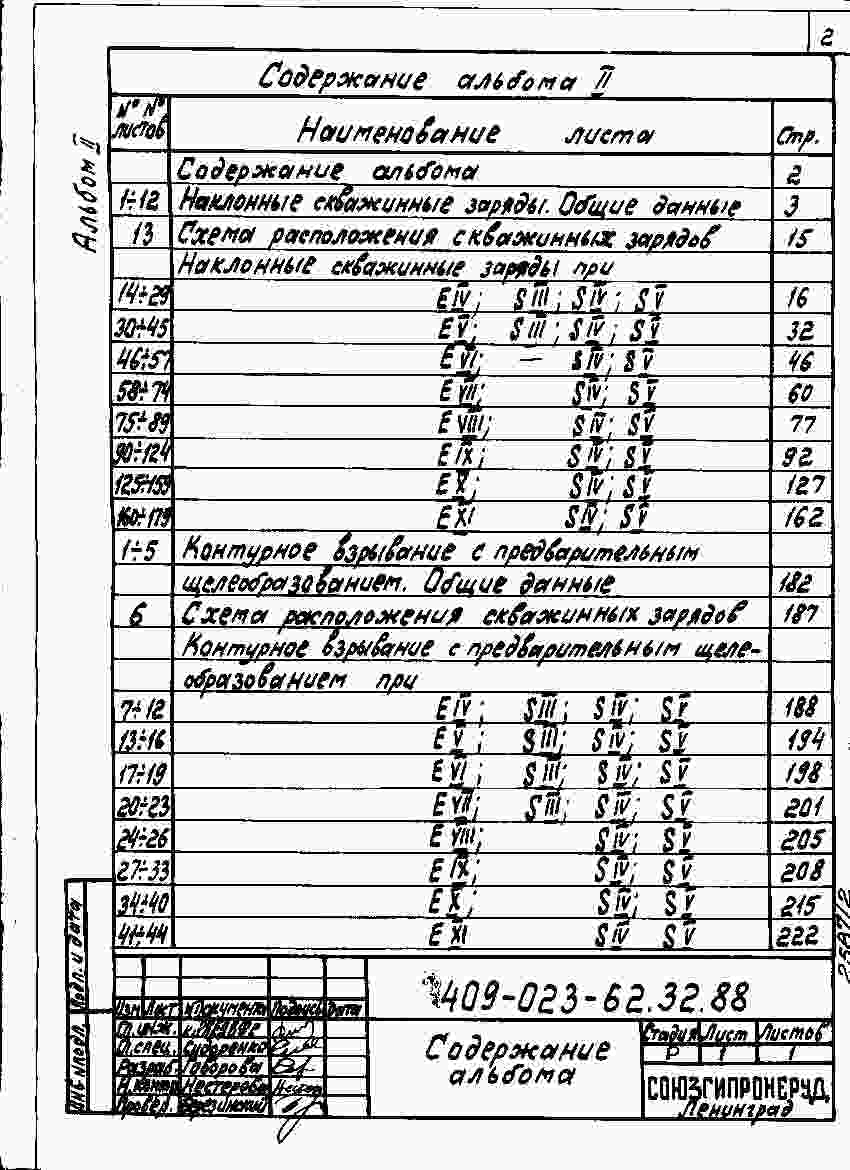 2
Содержание альбома II
Альбом II
№ № листов Наименование листа Стр.
Содержание альбома 2
1÷12 Наклонные скважинные заряды. Общие данные 3
13 Схема расположения скважинных зарядов 15
Наклонные скважинные заряды при
14÷29 E IV; S III; S IV; S V 16
30÷45 E V; S III; S IV; S V 32
46÷57 E VI; — S IV; S V 46
58÷74 E VII; S IV; S V 60
75÷89 E VIII; S IV; S V 77
90÷124 E IX; S IV; S V 92
125÷159 E X; S IV; S V 127
160÷179 E XI S IV; S V 162
1÷5 Контурное взрывание с предварительным
щелеобразованием. Общие данные 182
6 Схема расположения скважинных зарядов 187
Контурное взрывание с предварительным щеле-
образованием при
7÷12 E IV; S III; S IV; S V 188
13÷16 E V; S III; S IV; S V 194
17÷19 E VI; S III; S IV; S V 198
20÷23 E VII; S III; S IV; S V 201
24÷26 E VIII; S IV; S V 205
27÷33 E IX; S IV; S V 208
34÷40 E X; S IV; S V 215
41÷44 E XI S IV S V 222
Подп. и дата
Инв № подл.
409-023-62.32.88
Изм Лист № документа Подпись Дата
Гл. инж.
Гл. спец. Сидоренко
Разраб. Говорова
Н. контр. Нестерова
Провер. Березинский
Содержание
альбома
Стадия Лист Листов
Р 1 1
СОЮЗГИПРОНЕРУД
Ленинград